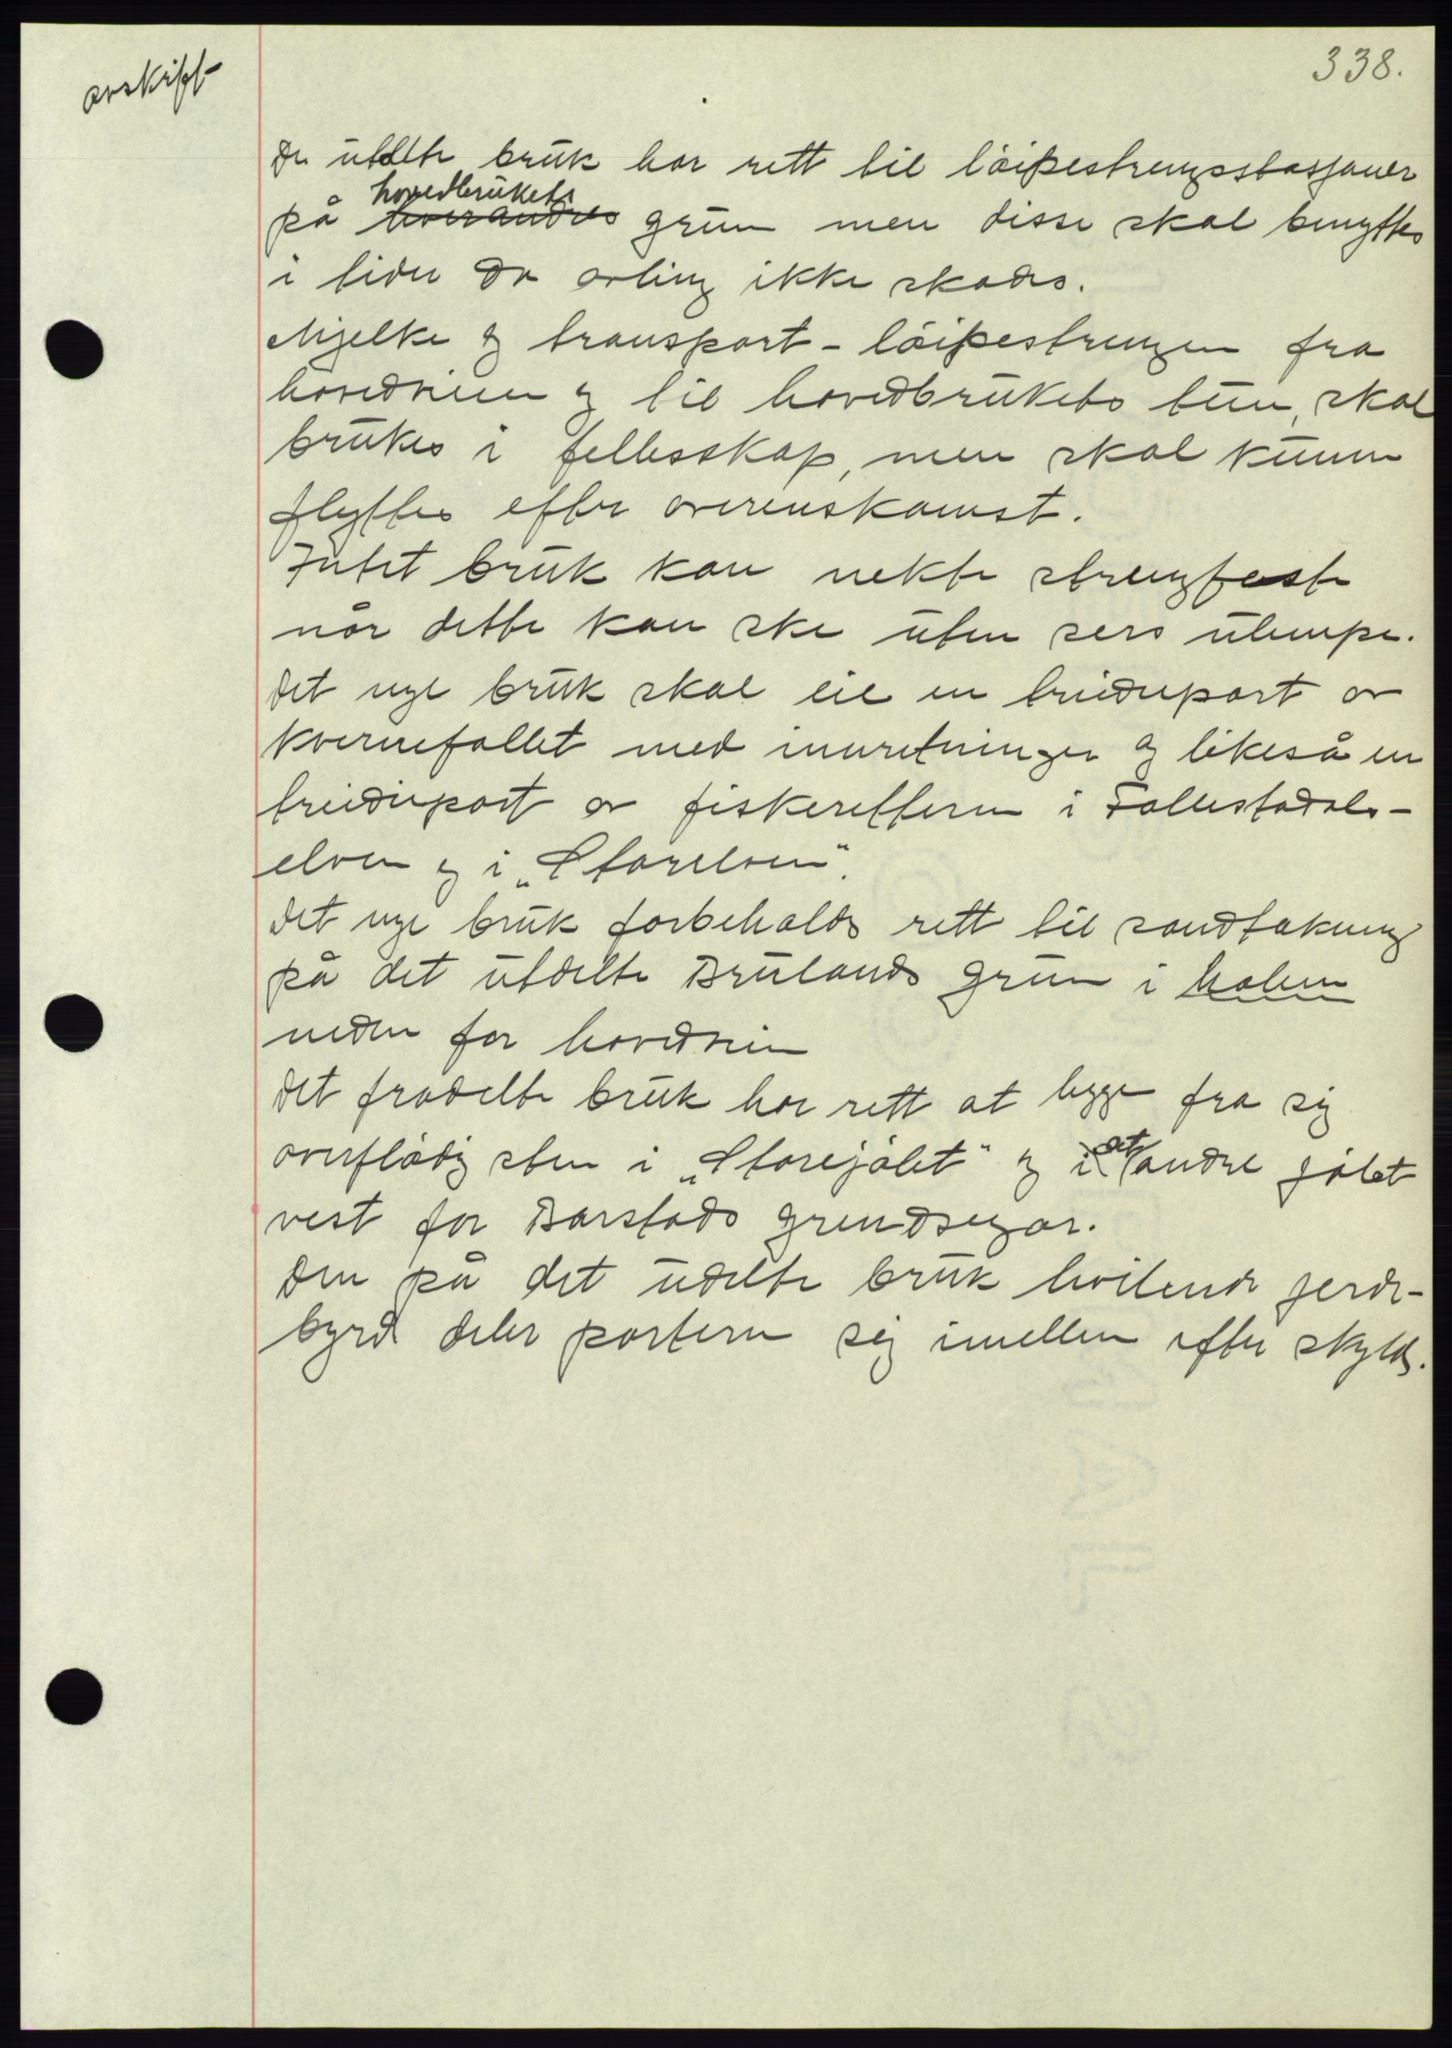 338.
avskift
De utdelte bruk har rett til löipestrengsstasjoner
hovedbrukets
på hverandres grun men disse skal benyttes
i tider da avling ikke skades.
Mjelke og transport-löipestrengen fra
hovedveien og til hovedbrukets tun, skal
brukes i fellesskap, men skal kunne
flyttes efter overenskomst.
Intet bruk kan nekte strengfeste
når dette kan ske uten sers ulempe.
Det nye bruk skal eie en tridepart av
kvernefallet med innretninger og likeså en
tridepart av fiskeretten i Follestadals-
elven og i „Storelven".
Det nye bruk forbeholds rett til sandtakning
på det utdelte Brulands grun i holen
neden for hovedvein
Det fradelte bruk har rett at legge fra sig
overflödig sten i „Storejölet" og i det andre jölet
vest for Barstads grendsegar.
Den på det udelte bruk hvilende gjerde-
byrd deler partene sig imellem efter skyld.